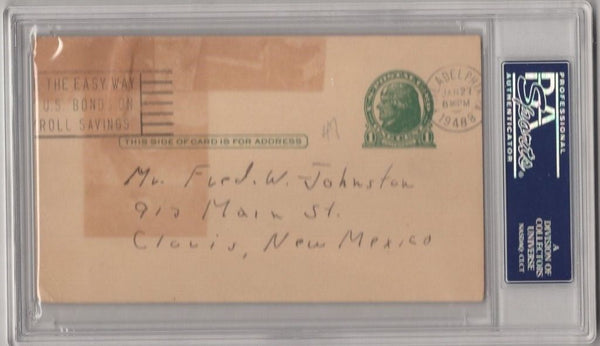 THE EASY WAY
U.S. BONDS ON
ROLL SAVINGS
ADELPHIA
JAN 27
6 PM
1948
THIS SIDE OF CARD IS FOR ADDRESS
1 1
Mr. Fred. W. Johnston
913 Main St.
Clovis, New Mexico
PSA
Sports
PROFESSIONAL
AUTHENTICATOR
A
DIVISION OF
COLLECTORS
UNIVERSE
NASDAQ: CLCT